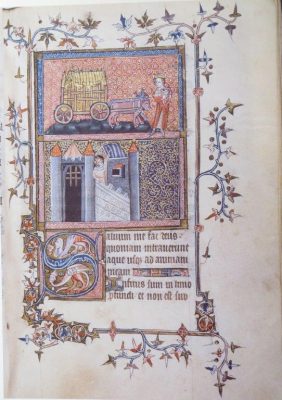 Saluum me fac deus
quoniam intrauerunt
aque usq ad animam
meam
Infixus sum in limo
pfundi et non est sub